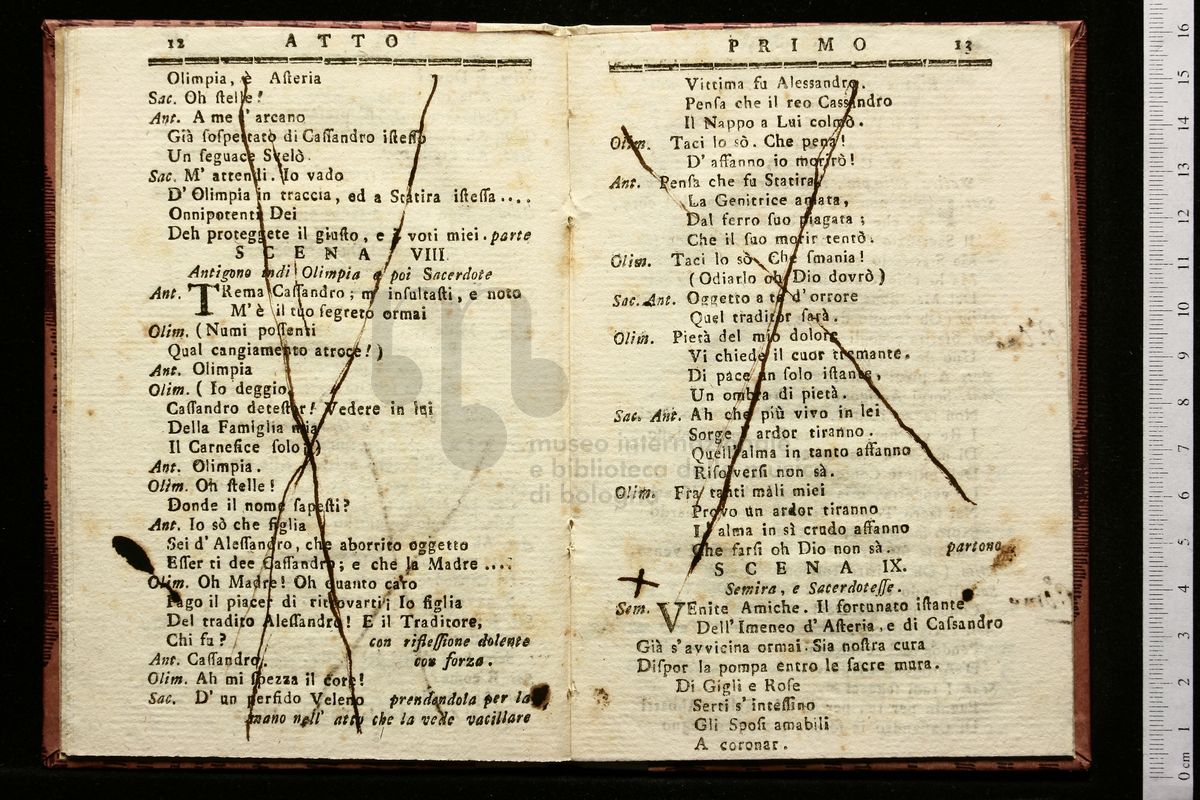 12 ATTO
Olimpia, è Aſteria
Sac. Oh ſtelle!
Ant. A me l'arcano
Già ſoſpettato di Caſſandro iſteſſo
Un ſeguace Svelò.
Sac. M' attendi. Io vado
D' Olimpia in traccia, ed a Statira iſteſſa....
Onnipotenti Dei
Deh proteggete il giuſto, e i voti miei. parte
SCENA VIII.
Antigono indi Olimpia e poi Sacerdote
Ant. TRema Caſſandro; m' inſultaſti, e noto
M'è il tuo ſegreto ormai
Olim. (Numi poſſenti
Qual cangiamento atroce!)
Ant. Olimpia
Olim. (Io deggio
Caſſandro deteſtar! Vedere in lui
Della Famiglia mia
Il Carnefice ſolo!)
Ant. Olimpia.
Olim. Oh ſtelle!
Donde il nome ſapeſti?
Ant. Io sò che figlia
Sei d' Aleſſandro, che aborrito oggetto
Eſſer ti dee Caſſandro; e che la Madre ....
Olim. Oh Madre! Oh quanto caro
Pago il piacer di ritrovarti; Io figlia
Del tradito Aleſſandro! E il Traditore,
Chi fu? con rifleſſione dolente
Ant. Caſſandro. con forza.
Olim. Ah mi ſpezza il core!
Sac. D' un perfido Veleno prendendola per la
mano nell' atto che la vede vacillare
PRIMO 13
Vittima fu Aleſſandro.
Penſa che il reo Caſſandro
Il Nappo a Lui colmò.
Olim. Taci lo sò. Che pena!
D' affanno io morirò!
Ant. Penſa che fu Statira,
La Genitrice amata,
Dal ferro ſuo piagata;
Che il ſuo morir tentò.
Olim. Taci lo sò. Che ſmania!
(Odiarlo oh Dio dovrò)
Sac. Ant. Oggetto a te d'orrore
Quel traditor ſarà.
Olim. Pietà del mio dolore
Vi chiede il cuor tremante.
Di pace un ſolo iſtante,
Un ombra di pietà.
Sac. Ant. Ah che più vivo in lei
Sorge l' ardor tiranno.
Quell'alma in tanto affanno
Riſolverſi non sà.
Olim. Fra tanti mali miei
Provo un ardor tiranno
L' alma in sì crudo affanno
Che farſi oh Dio non sà. partono
SCENA IX.
Semira, e Sacerdoteſſe.
Sem. VEnite Amiche. Il fortunato iſtante
Dell'Imeneo d'Aſteria, e di Caſsandro
Già s'avvicina ormai. Sia noſtra cura
Diſpor la pompa entro le ſacre mura.
Di Gigli e Roſe
Serti s' inteſſino
Gli Spoſi amabili
A coronar.
museo internazionale
e biblioteca d
di bolog
16
15
14
13
12
11
10
9
8
7
6
5
4
3
2
1
0 cm